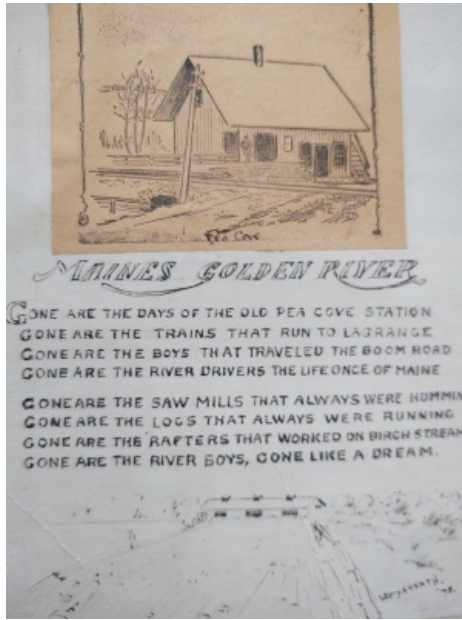 Pea Cove
MAINES GOLDEN RIVER
GONE ARE THE DAYS OF THE OLD PEA COVE STATION
GONE ARE THE TRAINS THAT RUN TO LAGRANGE
GONE ARE THE BOYS THAT TRAVELED THE BOOM ROAD
GONE ARE THE RIVER DRIVERS THE LIFE ONCE OF MAINE
GONE ARE THE SAW MILLS THAT ALWAYS WERE HUMMIN
GONE ARE THE LOGS THAT ALWAYS WERE RUNNING
GONE ARE THE RAFTERS THAT WORKED ON BIRCH STREAM
GONE ARE THE RIVER BOYS, GONE LIKE A DREAM.